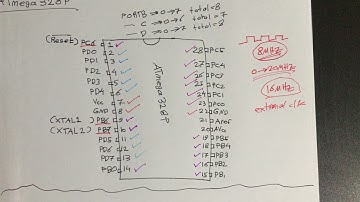 ATmega 328P
PORTB → 0→7 total=8
— C → 0→6 total=7
— D → 0→7 total=8
(Reset) PC6 1
PD0 2
PD1 3
PD2 4
PD3 5
PD4 6
Vcc 7
GND 8
(XTAL1) PB6 9
(XTAL2) PB7 10
PD5 11
PD6 12
PD7 13
PB0 14
ATmega 328P
28 PC5
27 PC4
26 PC3
25 PC2
24 PC1
23 PC0
22 GND
21 Aref
20 AVcc
19 PB5
18 PB4
17 PB3
16 PB2
15 PB1
8MHz
0→20MHz
16MHz
external